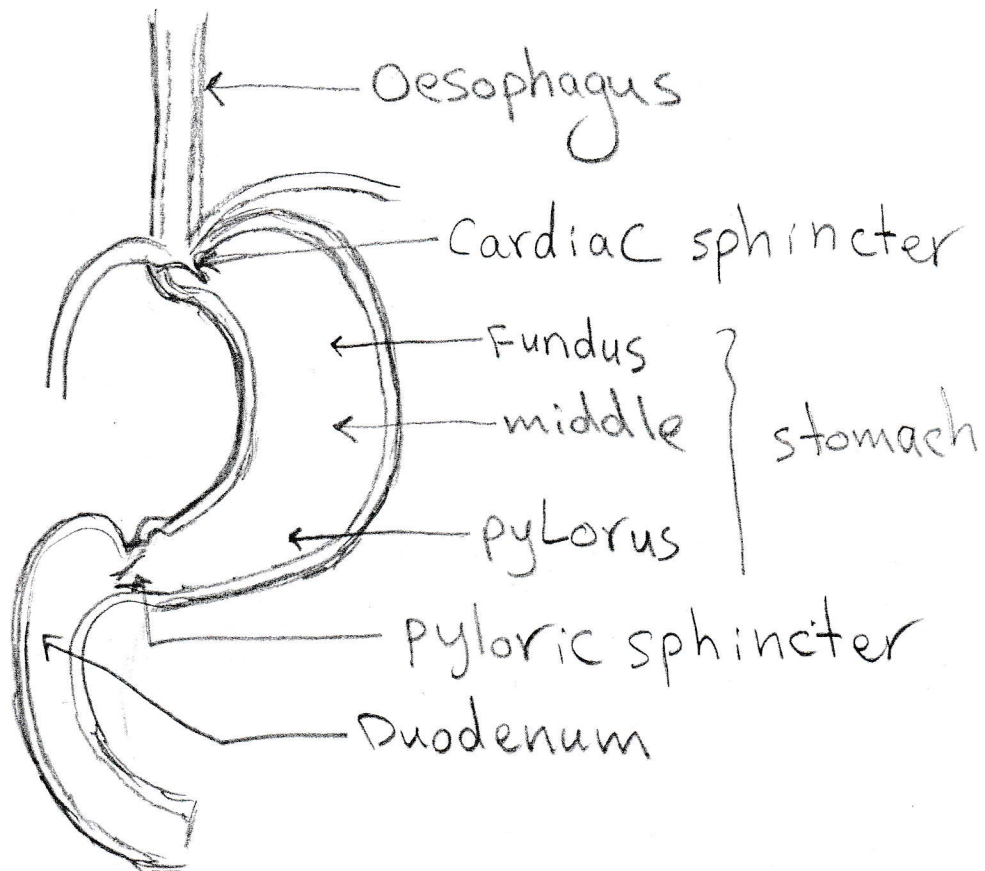 Oesophagus
Cardiac sphincter
Fundus
middle
stomach
pyLorus
pyloric sphincter
Duodenum